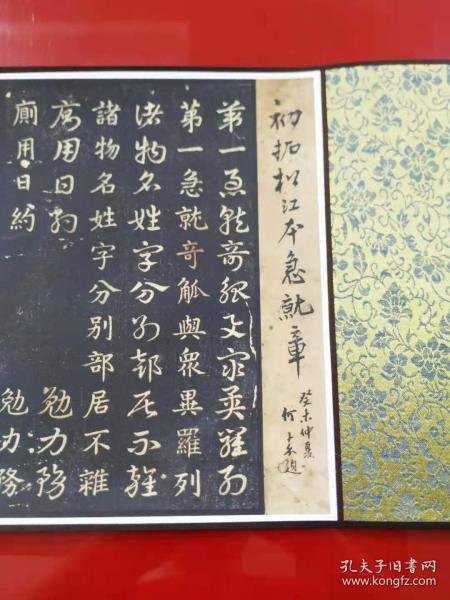 初拓松江本急就章
癸未仲夏
第一急就奇觚與衆異羅列
第一急就奇觚與衆異羅列
諸物名姓字分別部居不雜
諸物名姓字分別部居不雜
廁用日約 勉力務
廁用日約 勉力務
孔夫子旧书网
www.kongfz.com